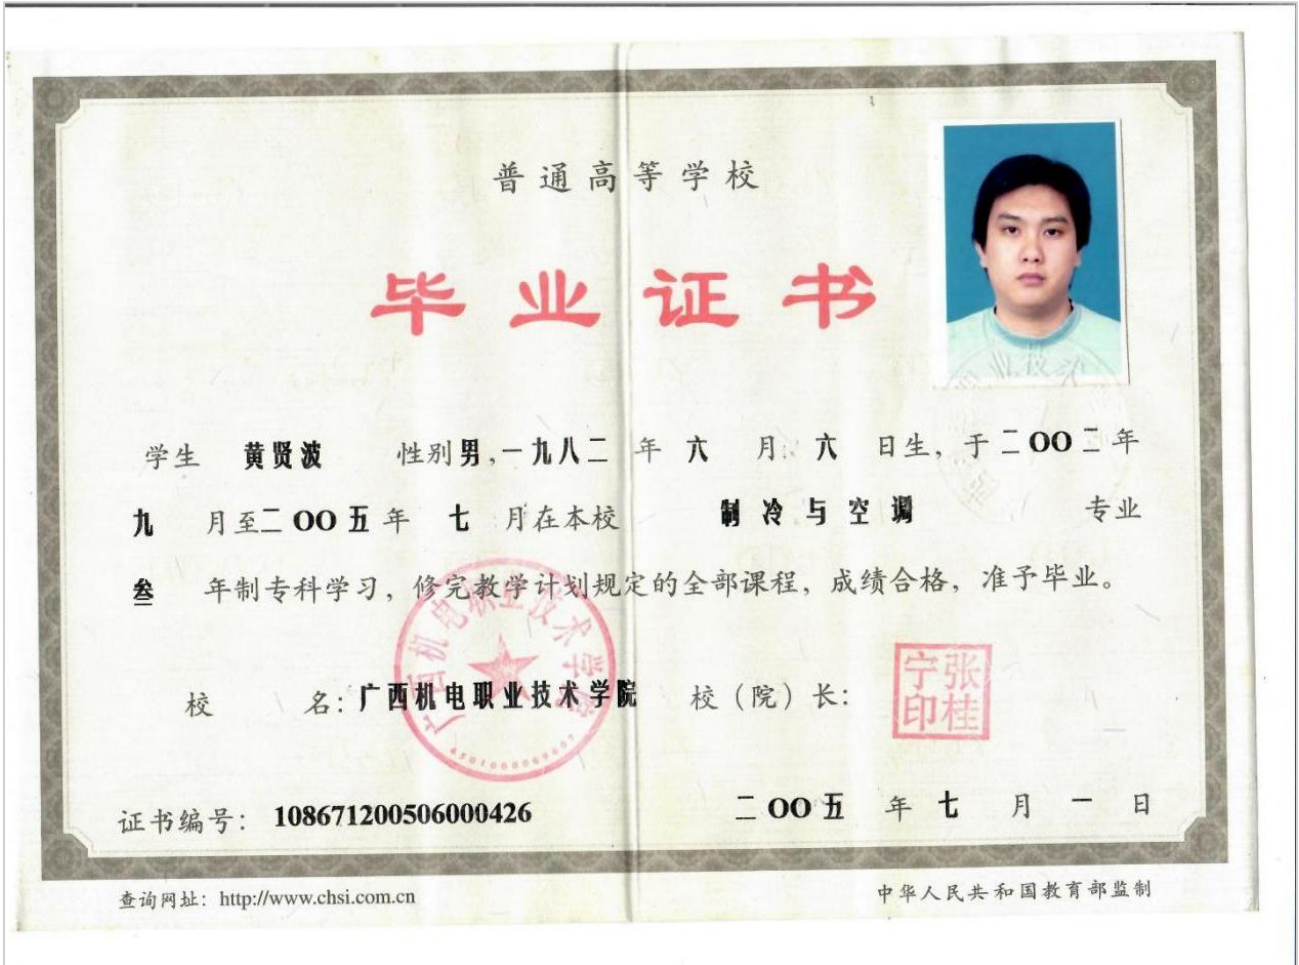 普通高等学校
毕业证书
学生 黄贤波 性别 男, 一九八二 年 六 月 六 日生, 于 二OO二 年
九 月至 二OO五 年 七 月在本校 制冷与空调 专业
叁 年制专科学习, 修完教学计划规定的全部课程, 成绩合格, 准予毕业。
校 名: 广西机电职业技术学院 校（院）长:
广西机电职业技术学院
张桂宁印
证书编号: 108671200506000426 二OO五 年 七 月 一 日
查询网址: http://www.chsi.com.cn 中华人民共和国教育部监制